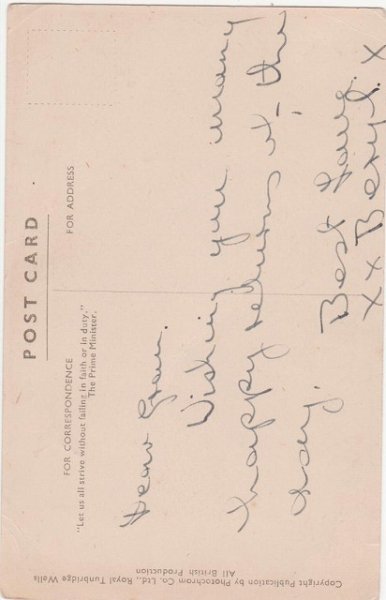 POST CARD
FOR CORRESPONDENCE
"Let us all strive without failing in faith or in duty."
The Prime Minister.
FOR ADDRESS
Dear Gran.
Wishing you many
happy returns of the
day.
Best Love.
xx Beryl. x
Copyright Publication by Photochrom Co. Ltd., Royal Tunbridge Wells
All British Production